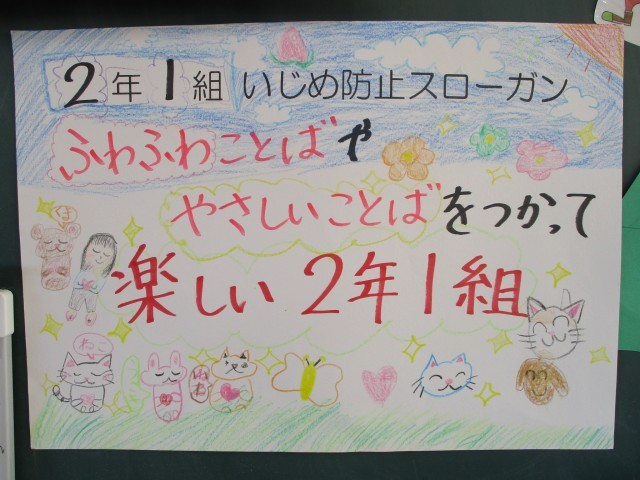 2年1組 いじめ防止スローガン
ふわふわことばや
やさしいことばをつかって
楽しい2年1組